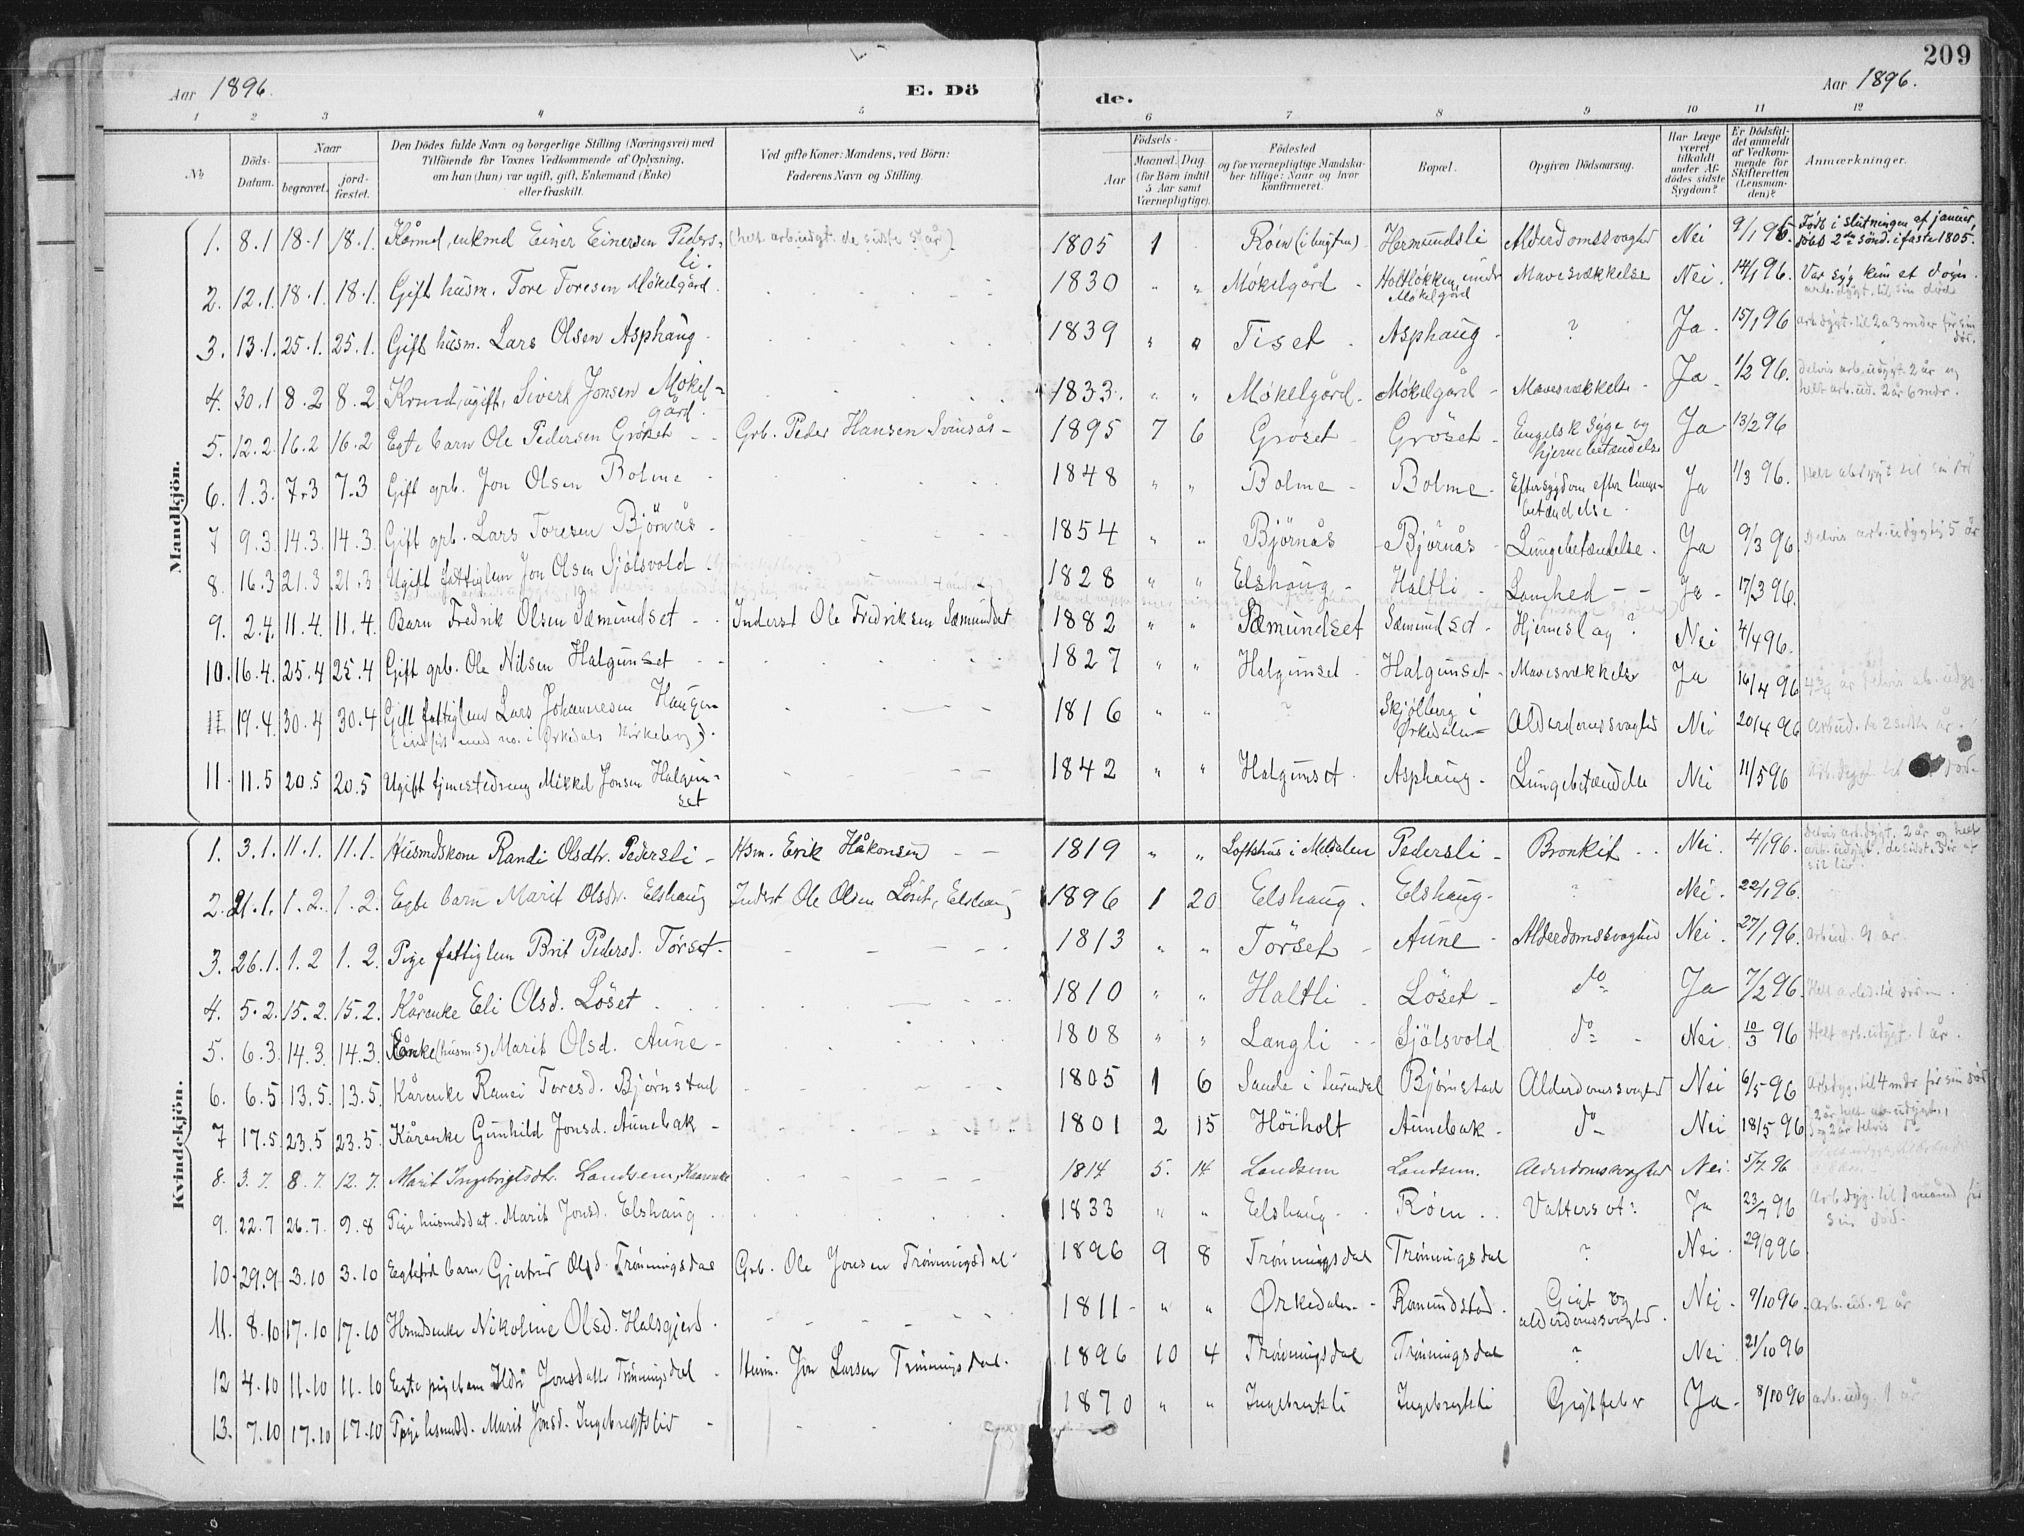 209
Aar 1896.
E. Dö
de.
Aar 1896.
1 2 3 4 5 6 7 8 9 10 11 12
No
Döds-Datum.
Naar
begravet. jord-fæstet.
Den Dödes fulde Navn og borgerlige Stilling (Næringsvei) med
Tilföiende for Voxnes Vedkommende af Oplysning,
om han (hun) var ugift, gift, Enkemand (Enke)
eller fraskilt.
Ved gifte Koner: Mandens, ved Börn:
Faderens Navn og Stilling.
Födsels-
Aar
Maaned. Dag.
(for Börn indtil 5 Aar samt Værnepligtige).
Födested
og for værnepligtige Mandska-
ber tillige: Naar og hvor
konfirmeret.
Bopæl.
Opgiven Dödsaarsag.
Har Læge
været
tilkaldt
under Af-
dödes sidste
Sygdom?
Er Dödsfal-
det anmeldt
af Vedkom-
mende for
Skifteretten
(Lensman-
den)?
Anmærkninger.
Mandkjön.
1. 8.1 18.1 18.1. Kårmd, enkmd Einer Einersen Pedersli. (helt arb.udygt. de sidste 5 år) 1805 1 Røen Hermundsli Alderdomssvaghed Nei 9/1 96. Født i slutningen af januar, døbt 2den sønd. i faste 1805.
2. 12.1. 18.1. 18.1. Gift husm. Tore Toresen Møkelgård. 1830 " " Møkelgård Holtløkken under Møkelgård Mavesvækkelse Nei. 14/1 96. Var syg kun et døgn. arb.dygt. til sin død
3. 13.1. 25.1. 25.1. Gift husm. Lars Olsen Asphaug. 1839 " " Tiset Asphaug ? Ja 15/1 96 arb.dygt. til 2 a 3 mdr før sin død.
4. 30.1 8.2 8.2 ugift, Sivert Jonsen Møkelgård. 1833. " " Møkelgård Møkelgård Mavesvækkelse Ja 1/2 96. Delvis arb.udygt. 2 år og helt arb.ud. 2 år 6 mdr.
5. 12.2. 16.2 16.2 Egte barn Ole Pedersen Grøset Grb. Peder Hansen Svinsås 1895 7 6 Grøset Grøset Engelsk Syge og hjernebetændelse Ja 13/2 96
6. 1.3. 7.3 7.3 Gift grb. Jon Olsen Bolme 1848 " " Bolme Bolme Eftersygdom efter lungebetændelse. Ja 1/3 96. Helt abdygt til sin død
7 9.3 14.3. 14.3. Gift grb. Lars Toresen Björnås 1854 " " Björnås Björnås Lungebetændelse. Ja 9/3 96 Delvis arb.udygtig 5 år
8. 16.3 21.3 21.3 Ugift fattiglem Jon Olsen Sjölsvold 1828 " " Elshaug Haltli Lamhed Ja 17/3 96.
9. 2.4. 11.4. 11.4. Barn Fredrik Olsen Sæmundset Inderst Ole Fredriksen Sæmundset 1882 " " Sæmundset Sæmundset Hjerneslag? Nei 4/4 96.
10. 16.4. 25.4 25.4 Gift grb. Ole Nilsen Halgunset 1827 " " Halgunset Halgunset Mavesvækkelse Ja 16/4 96 4 3/4 år delvis ab. udyg.
11 19.4. 30.4 30.4 Gift fattiglem Lars Johannesen Haugen (indført med no. i Ørkedals Kirkebog). 1816 " " ? Skjølberg i Ørkedalen Alderdomssvaghed Nei 20/4 96 Arbud. de 2 sidste år.
11. 11.5 20.5 20.5 Ugift tjenestedreng Mikkel Jonsen Halgunset 1842 " " Halgunset Asphaug Lungebetændelse Nei 11/5 96 Arb.dygt til død
Kvindekjön.
1. 3.1. 11.1. 11.1. Husmdskone Randi Olsdtr. Pedersli Hsm. Erik Håkonsen 1819 " " Lofthus i Meldalen Pedersli Bronkit Nei. 4/1 96. Delvis arb.dygt. 2 år og helt arb.udygt. de sidst. 5 år af sit liv
2. 21.1. 1.2. 1.2. Egte barn Marit Olsdr. Elshaug Inderst Ole Olsen Løset, Elshaug 1896 1 20 Elshaug Elshaug ? Nei. 22/1 96.
3. 26.1. 1.2 1.2. Pige fattiglem Brit Pedersd. Tørset 1813 " " Tørset Aune Alderdomssvaghed Nei. 27/1 96. Arb.ud. 9 år.
4. 5.2. 15.2. 15.2. Kårenke Eli Olsd. Løset 1810 " " Haltli Løset do Ja 7/2 96. Helt arbd. til døden.
5. 6.3 14.3. 14.3. Enke (husm.s) Marit Olsd. Aune 1808 " " Langli Sjölsvold do Nei 10/3 96 Helt arb.udygt. 1 år.
6. 6.5 13.5. 13.5. Kårenke Ranei Toresd. Bjørnstad 1805 1 6 Sande i Surendal Bjørnstad Alderdomssvaghed Nei 6/5 96 Arb.dyg. til 4 mdr før sin død
7 17.5. 23.5 23.5. Kårenke Gunhild Jonsd. Aunebak 1801 2 15 Höiholt Aunebak do Nei 18/5 96 2 år helt ab.udygt, og 2 år delvis do
8. 3.7. 8.7. 12.7. Marit Ingebrigtsdtr. Landsem, Kaarenke 1814 5. 14 Landsem Landsem. Alderdomssvaghed Nei. 5/7. 96
9. 22.7 26.7. 9.8 Pige husmdsdat. Marit Jonsd. Elshaug 1833 " " Elshaug Røen Vattersot? Ja 23/7 96 Arb.dyg. til 1 maaned før sin død.
10. 29.9. 3.10 3.10 Egtefød barn Gjertrud Olsd. Trønningsdal Grb. Ole Jonsen Trønningsdal 1896 9 8 Trønningsdal Trønningsdal ? Nei 29/9 96
11. 8.10 17.10 17.10 Hsmdsenke Nikoline Olsd. Halsgjerd 1811 " " Ørkedalen Romundstad Gigt og alderdomssvaghed. Nei 9/10 96. Arb.ud. 2 år
12 4.10 11.10 11.10 Egte pigebarn Ildri Jonsdatter Trønningsdal Husm. Jon Larsen Trønningsdal 1896 10 4 Trønningsdal Trønningsdal ? Nei 21/10 96
13. 7.10 17.10 17.10 Pige Marit Jonsd. Ingebrigtsli 1870 " " Ingebrigtsli Ingebrigtsli Gigtfeber Ja 8/10 96 arb.udyg. 1 år